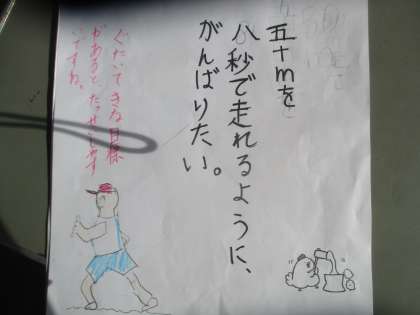 五十mを
八秒で走れるように、
がんばりたい。
ぐたいてきな目標
があると、たっせいしやす
いですね。